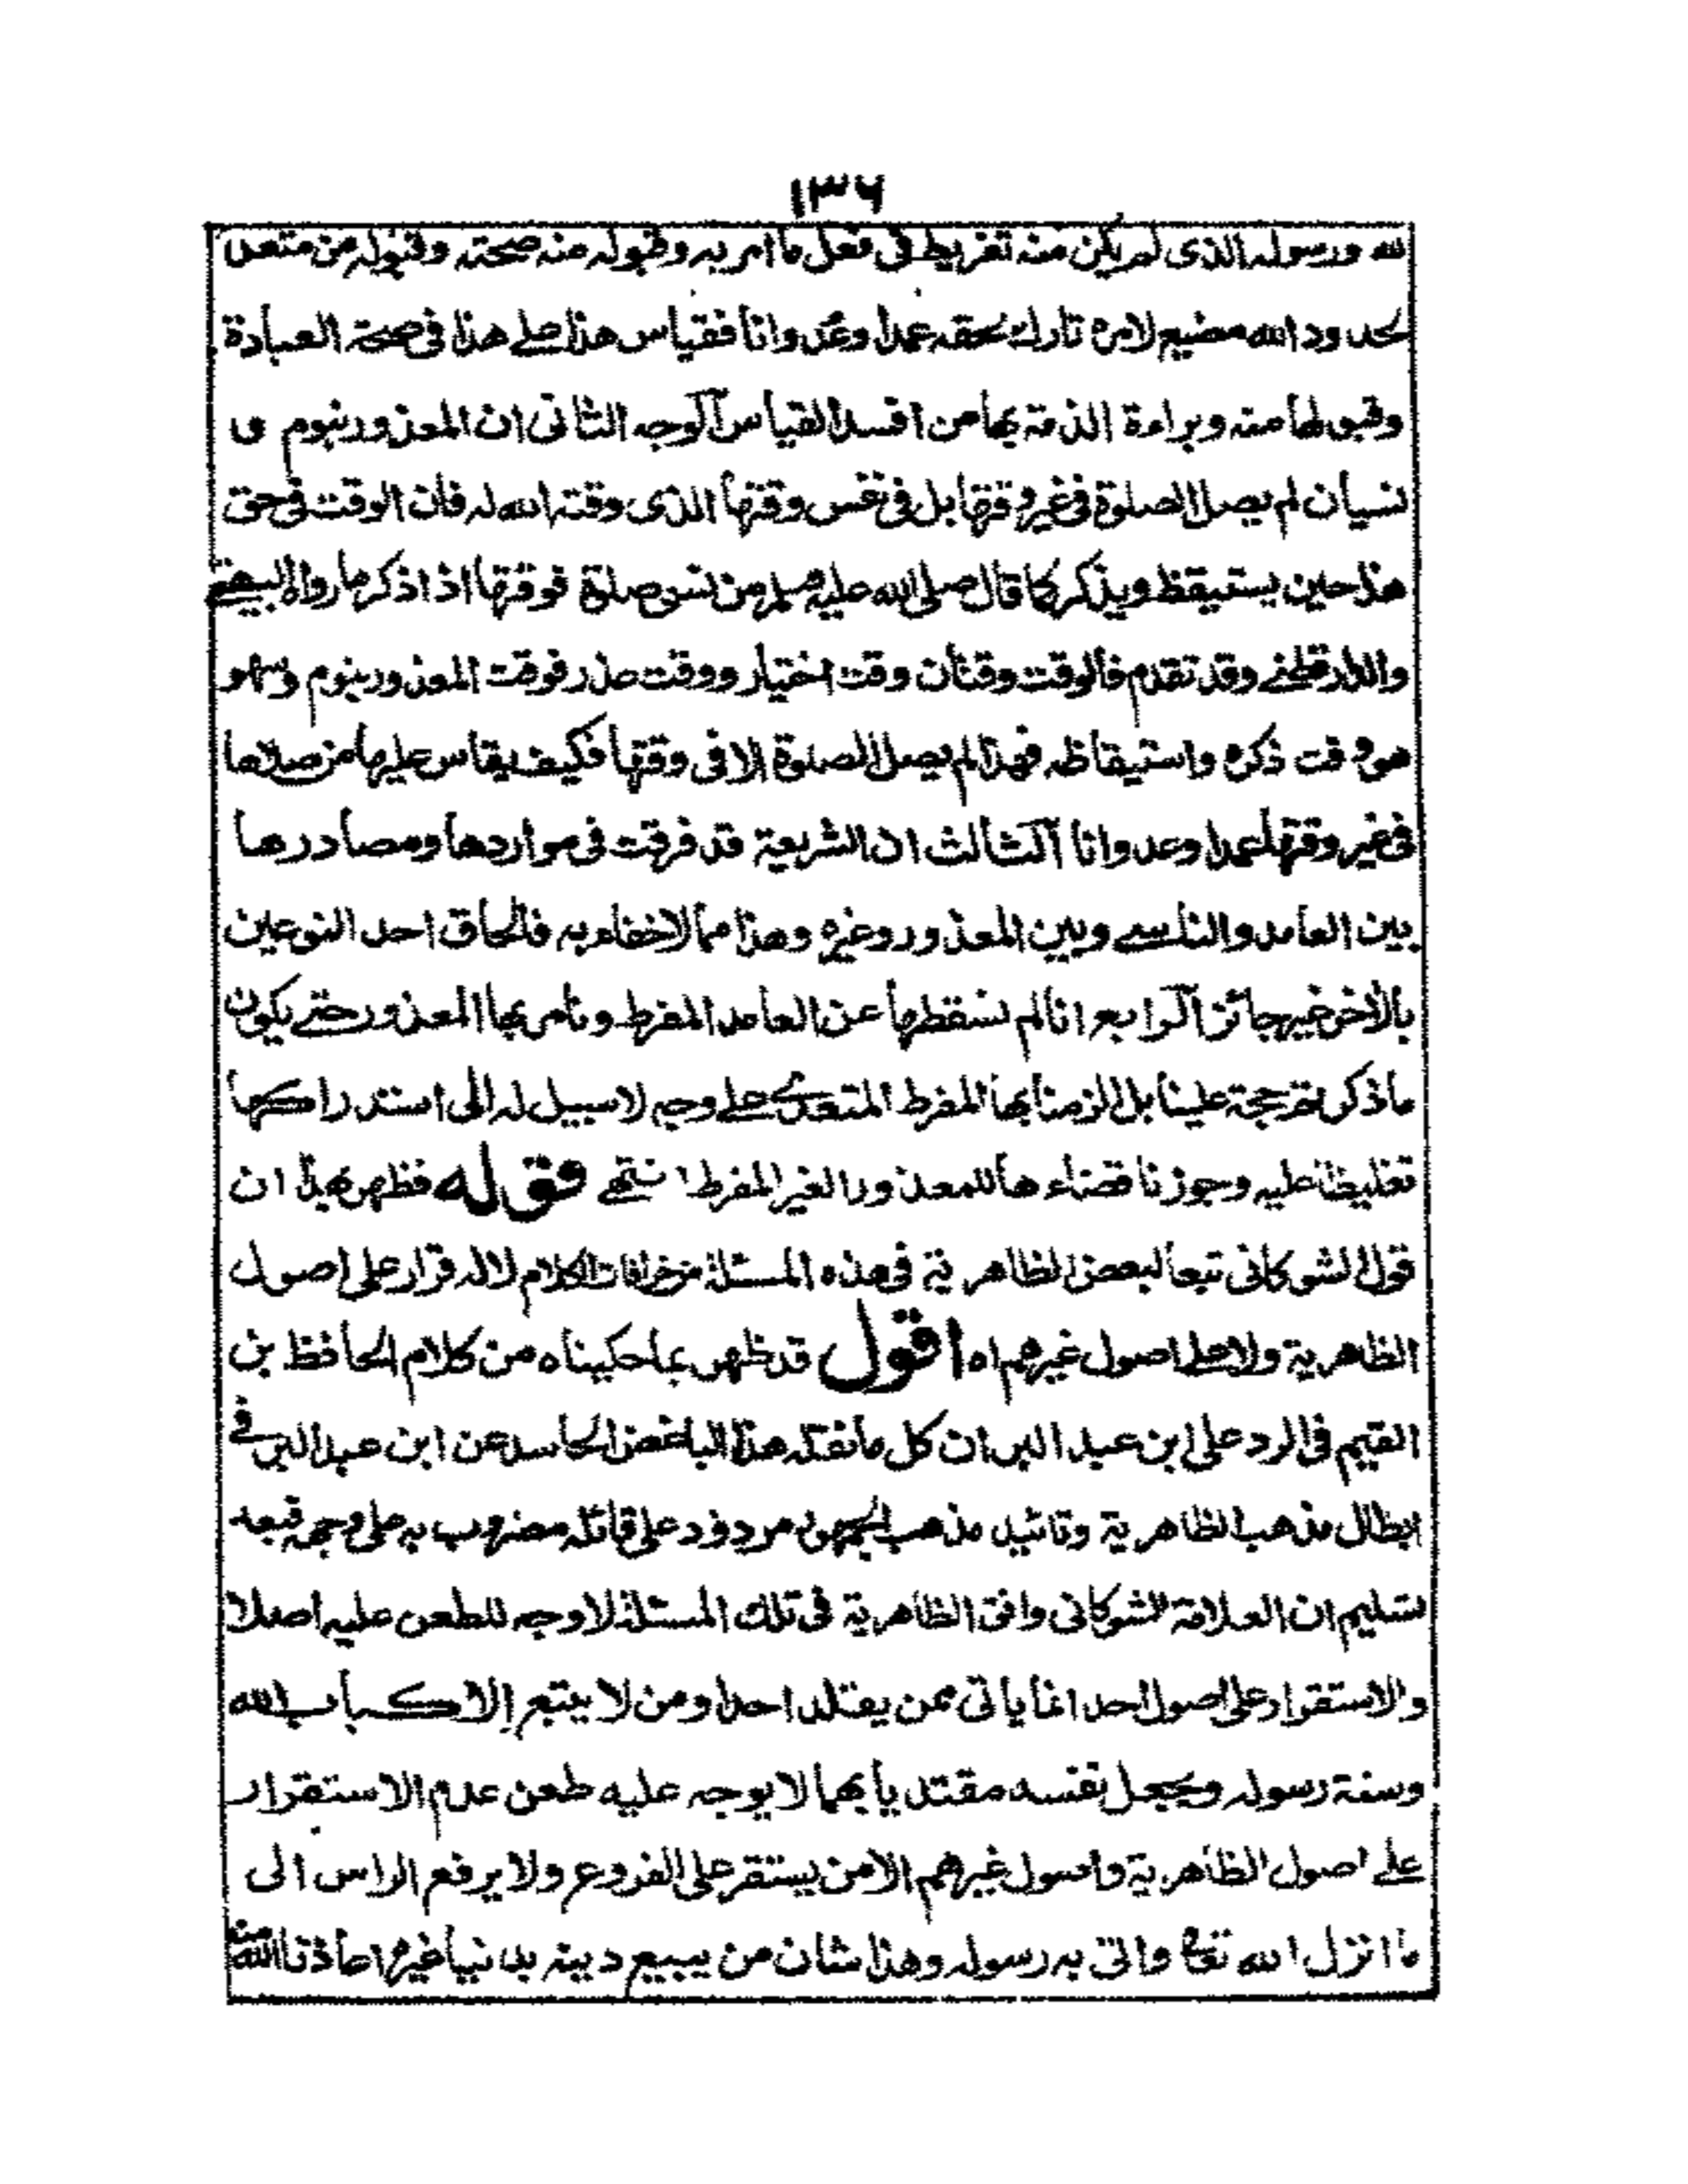 ١٣٦
لله ورسوله الذى لم يكن منه تفريط فى فعل ما امر به وقبوله منه صحته وقبوله من متعد
لحدود الله مضيع لامره تارك لحقه عمدا وعدوانا فقياس هذا على هذا فى صحة العبادة
وقبولها منه وبراءة الذمة بها من افسد القياس آلوجه الثانى ان المعذور بنوم و
نسيان لم يصل الصلوة فى غير وقتها بل فى نفس وقتها الذى وقته الله له فان الوقت فى حق
هذا حين يستيقظ ويذكر كما قال صلى الله عليه وسلم من نسى صلوة فوقتها اذا ذكرها رواه البيهقے
والدارقطنے وقد تقدم فالوقت وقتان وقت اختيار ووقت عذر فوقت المعذور بنوم وسهو
هو وقت ذكره واستيقاظه فهذا لم يصل الصلوة الا فى وقتها فكيف يقاس عليها من صلاها
فى غير وقتها عمدا وعدوانا آلثالث ان الشريعة قد فرقت فى مواردها ومصادرها
بين العامد والناسے وبين المعذور وغيره وهذا مما لاخفاء به فالحاق احد النوعين
بالأخر غير جائز آلرابع انا لم نسقطها عن العامد المفرط ونامر بها المعذور حتے يكون
ماذكرتم حجة علينا بل الزمنا بها المفرط المتعدے علے وجه لاسبيل له الى استدراكها
تغليظا عليه وجوزنا قضاءها للمعذور الغير المفرط انتهے قوله فظهر بهذا ان
قول الشوكانى تبعا لبعض الظاهرية فى هذه المسئلة من خرافات الكلام لاله قرار على اصول
الظاهرية ولا علے اصول غيرهم اه اقول قد ظهر بما حكيناه من كلام الحافظ بن
القيم فى الرد على ابن عبد البر ان كل ما نقله هذا الباغض الحاسد عن ابن عبد البر فے
ابطال مذهب الظاهرية وتائيد مذهب الجمهور مردود على قائله مضروب به على وجهه فبعد
تسليم ان العلامة الشوكانى وافق الظاهرية فى تلك المسئلة لا وجه للطعن عليه اصلا
والاستقرار على اصول احد انما ياتى ممن يقلد احدا ومن لا يتبع إلا كتاب الله
وسنة رسوله ويجعل نفسه مقتديا بهما لا يوجه عليه طعن عدم الاستقرار
علے اصول الظاهرية واصول غيرهم الا من يستقر على الفروع ولا يرفع الراس الى
ما انزل الله تعالى واتى به رسوله وهذا شان من يبيع دينه بدنيا غيره اعاذنا الله منه